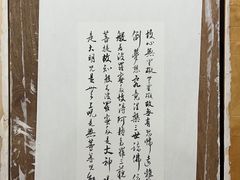 故心無罣礙無罣礙故無有恐怖遠離
倒夢想究竟涅槃三世諸佛依
般若波羅蜜多故得阿耨多羅三藐
菩提故知般若波羅蜜多是大神
是大明咒是無上咒是無等等咒